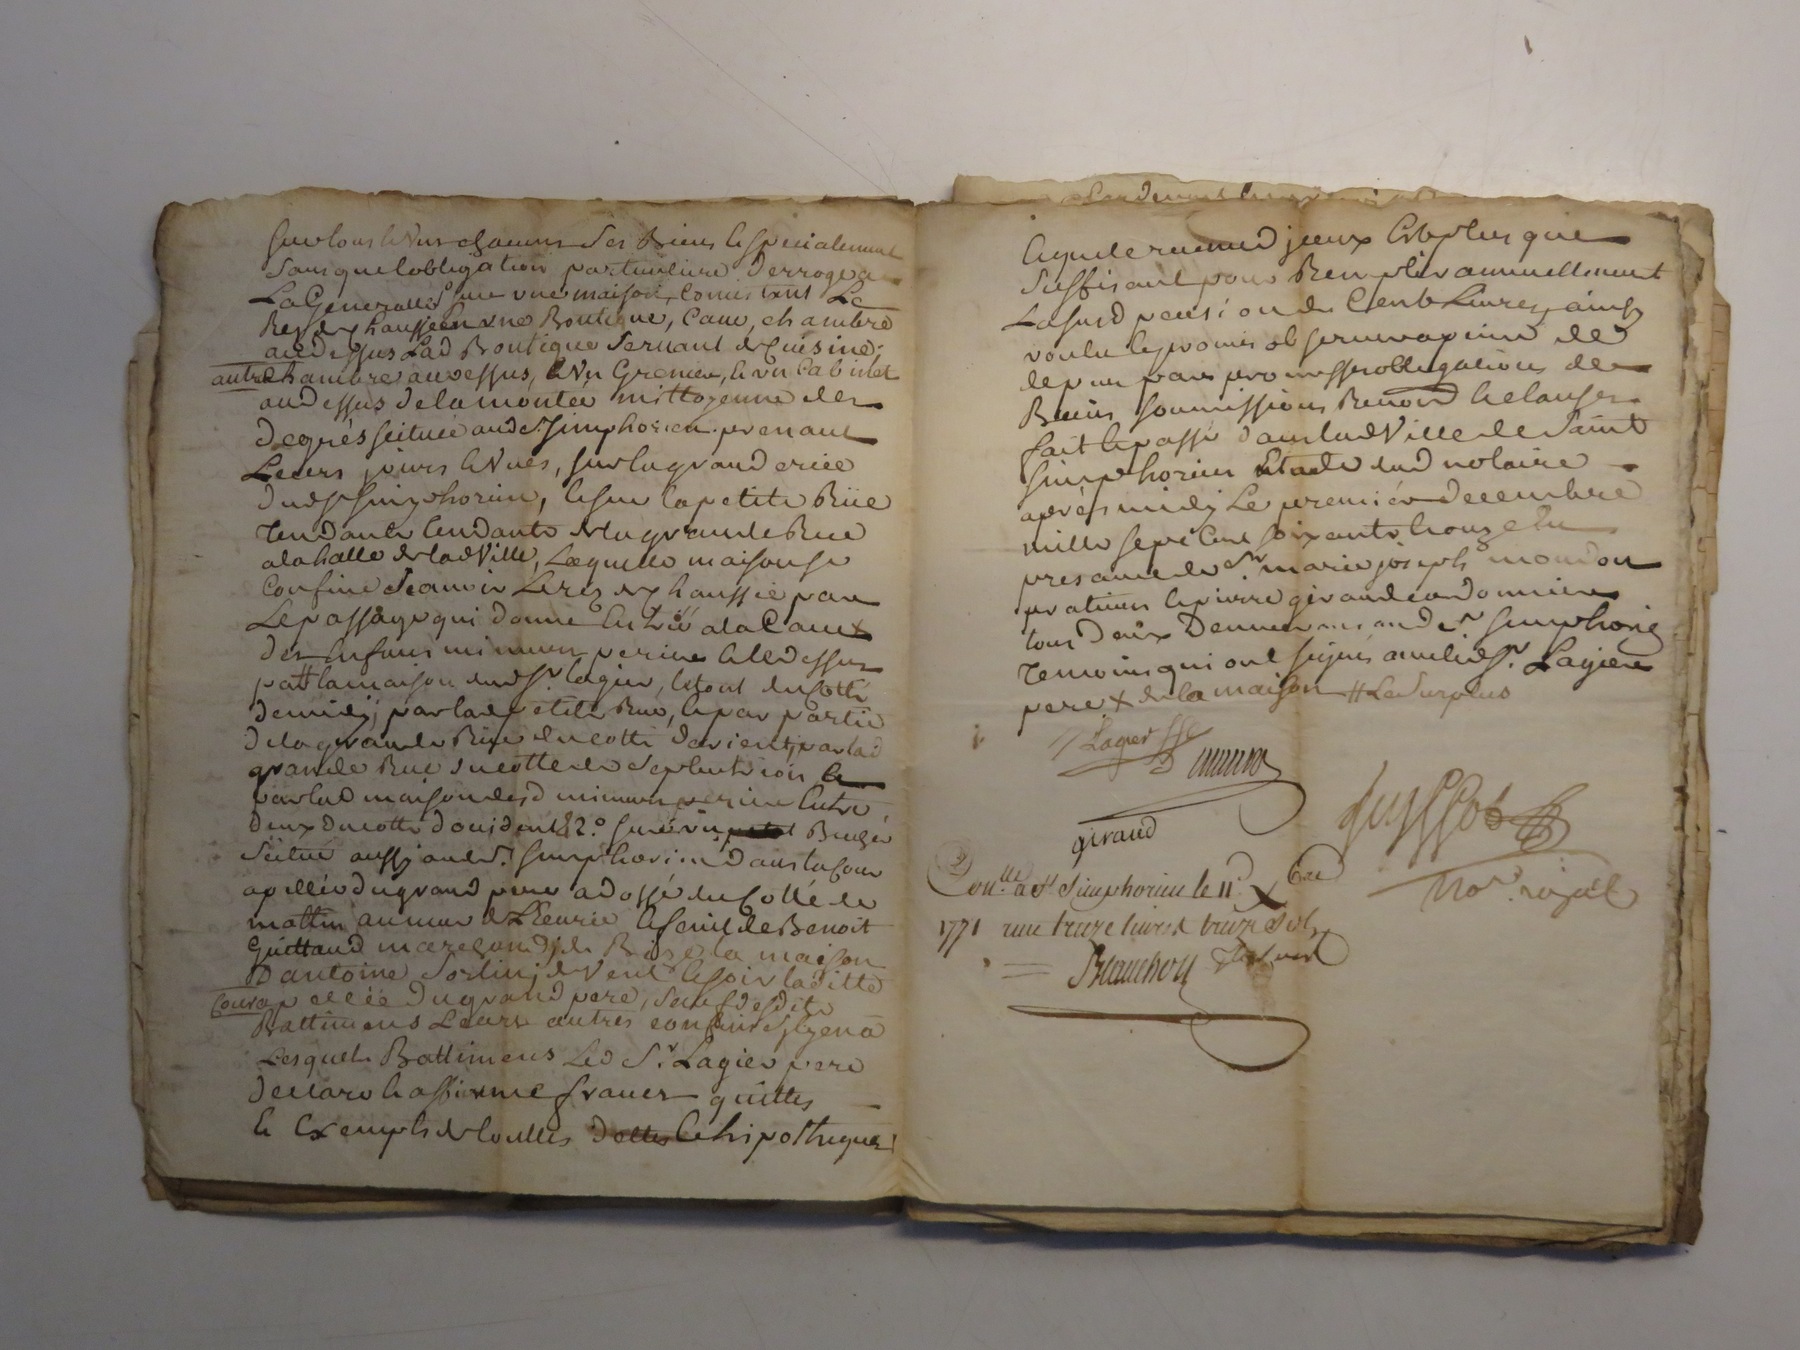 sur tous et un chacuns ses Biens et specialement
sans que lobligation particuliere derroge a
La Generalle 1° sur une maison, Consistant Le
Rez de chaussée en une Boutique, Cave, chambre
au dessus Lad Boutique servant de Cuisine,
autre chambre au dessus, et un Grenier, et un Cabinet
au dessus de la montée mittoyenne des
degrés scituée aud St Simphorien prenant
Leurs jours et vues, sur la grande rüe
dud St Simphorien, et sur la petite Rüe
tendante de la grande Rue
a la halle de lad Ville, Laquelle maison se
Confine Scavoir Le rez de chaussée par
Le passage qui donne Entrée a la Cave X
des Enfans mineurs perrin et le dessus
par # la maison dud Sr. lagier, le tout du Cotté
de midy, par lad petite Rue, et par partie
de la grande Rüe du cotté dorient, par lad
grande Rue du cotté de Septentrion et
par lad maison desd mineurs perrin Entre
deux du cotté doccident & 2.° sur un Berger
scitué aussy aud St. Simphorien dans la Cour
apellée du grand pere adossé du Cotté de
mattin au mur de L'Ecurie et fenil de Benoit
Guittaud marechand, de Bize la maison
Dantoine Sorlin, de vent et soir laditte
Cour apellée du grand pere, sauf desdits
Battimens Leurs autres confins sy y en a
Lesquels Battimens Led Sr. Lagier pere
declare et affirme francs quittes
et Exempts de touttes dettes et hipotheques
suffisant pour Remplir annuellement
La susd pension de Cent Livres, ainsy
voulu et promis observer a peine de
depens par promesse obligations de
Biens soumissions Renond et clauses
fait et passé dans lad Ville de Saint
Simphorien Etude dud notaire
après midy Le premier decembre
mille sept Cent soixante honze En
presance de Sr. marie joseph mondon
praticien et pierre giraud cordonnier
tous deux Demeurans aud St Simphorien
Temoins qui ont signés avec led Sr. Lagier
pere X de la maison # Le Surplus
Lagier
giraud
no.re royal
Con.lle a St Simphorien le 11 X bre
1771 reçu treize livres treize sols